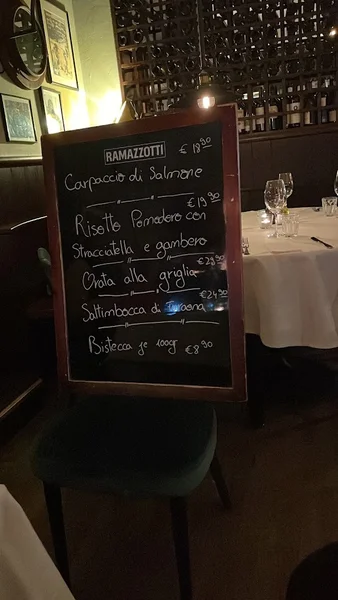 RAMAZZOTTI
€ 18,90
Carpaccio di Salmone
€ 19,90
Risotto Pomodoro con
Stracciatella e gambero
€29,90
Orata alla griglia
€24,90
Saltimbocca di
Bistecca je 100gr €8,90